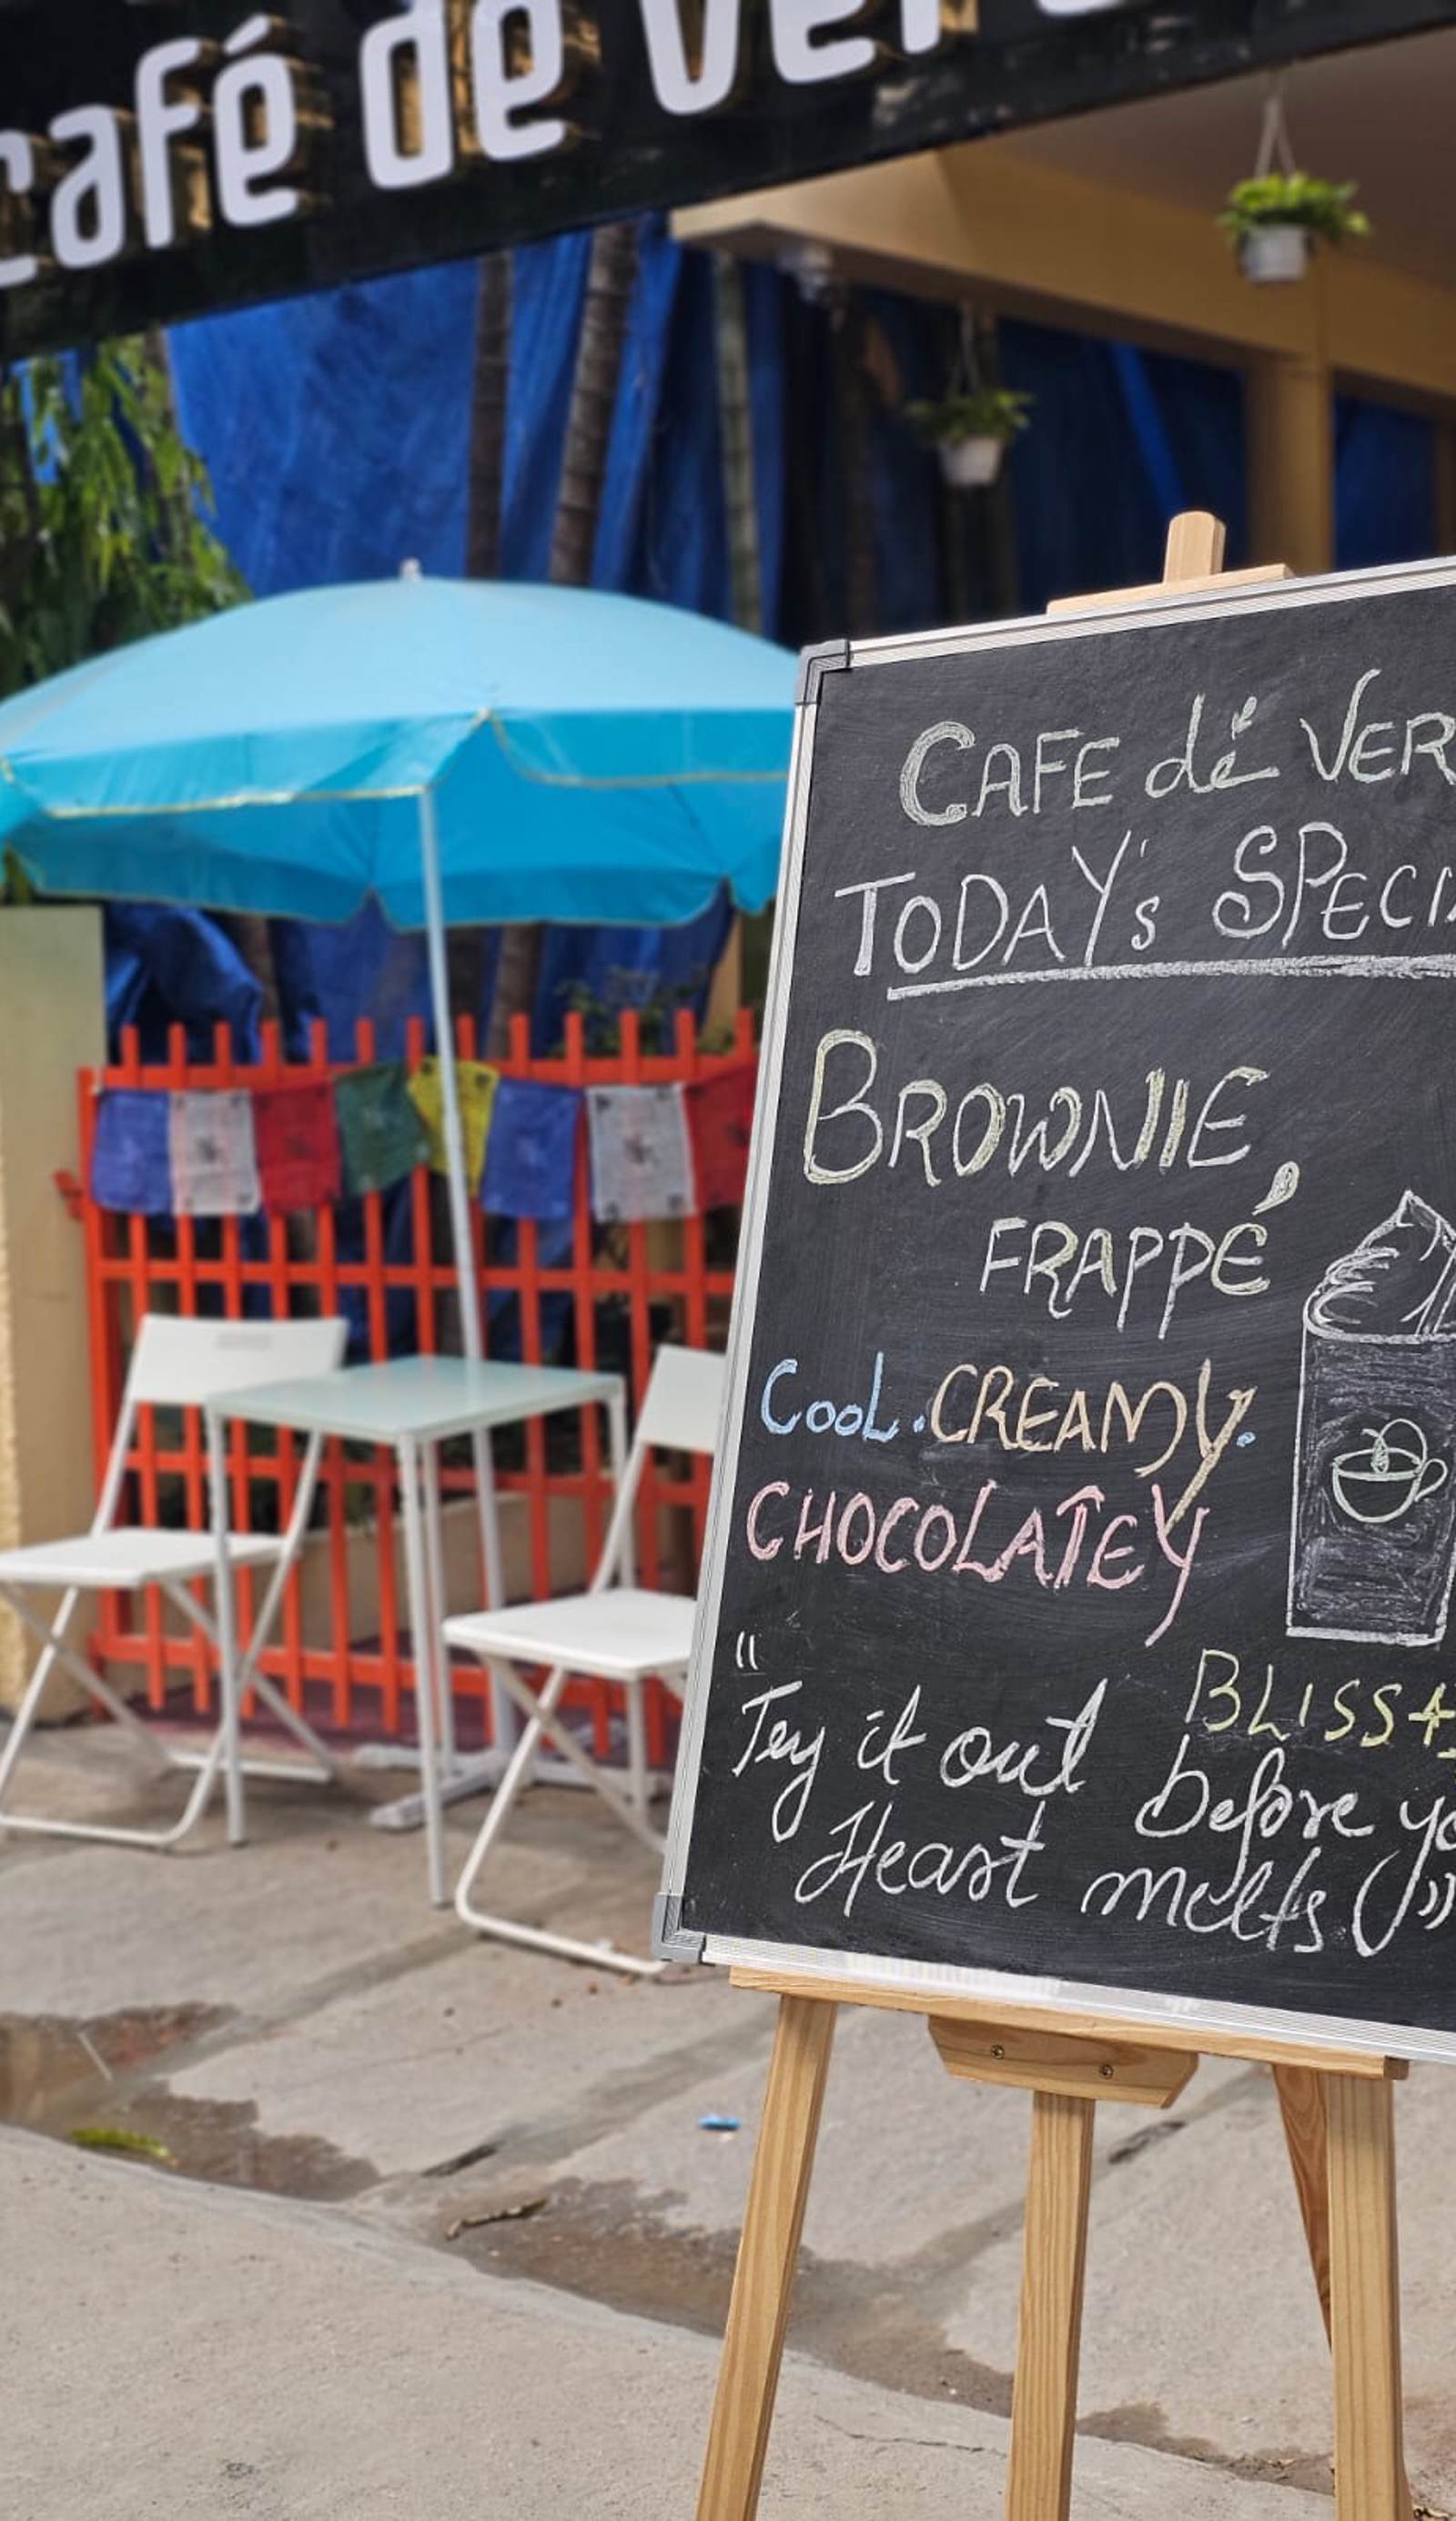 café de ver
CAFE dé VER
TODAY's SPECI
BROWNIE
FRAPPÉ
COOL. CREAMY.
CHOCOLATEY
BLISS
"Try it out before yo
Heart melts